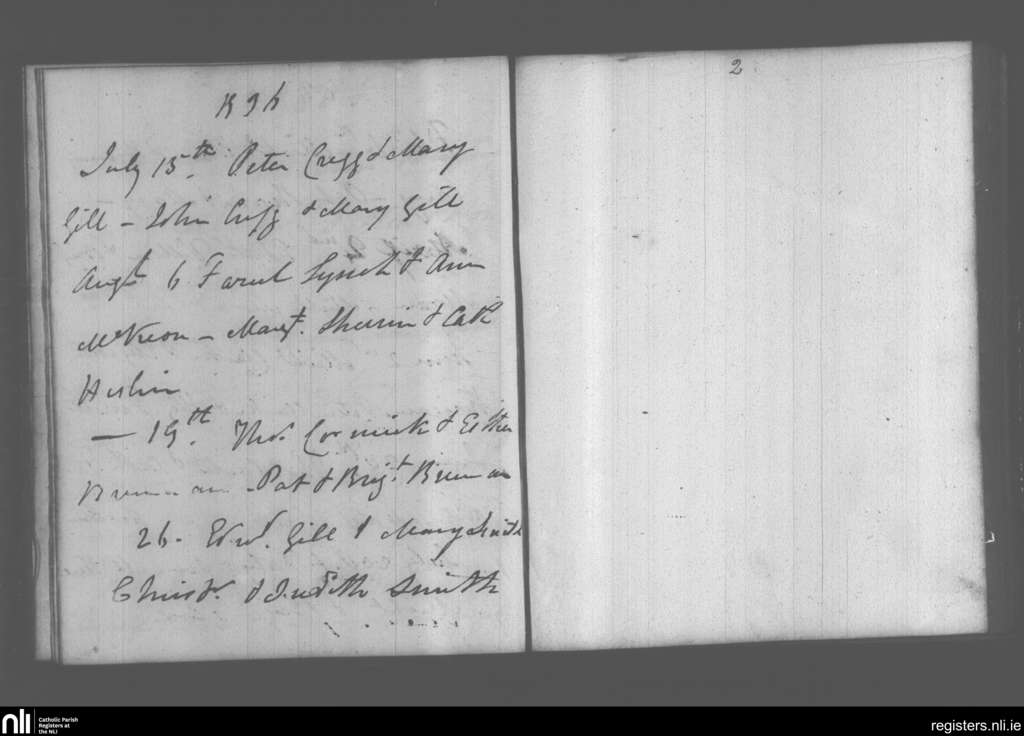 1836
July 15th. Peter Cregg & Mary
Gill - John Cregg & Mary Gill
Augt 6 Farrel Lynch & Ann
McKeon - Margt. Sherin & Cath
Heslin
- 19th. Thos. Cormick & Esther
Brennan - Pat & Brigt. Brennan
26. Edwd. Gill & Mary Smith
Christr. & Judith Smith
2
nli
Catholic Parish
Registers at
the NLI
registers.nli.ie